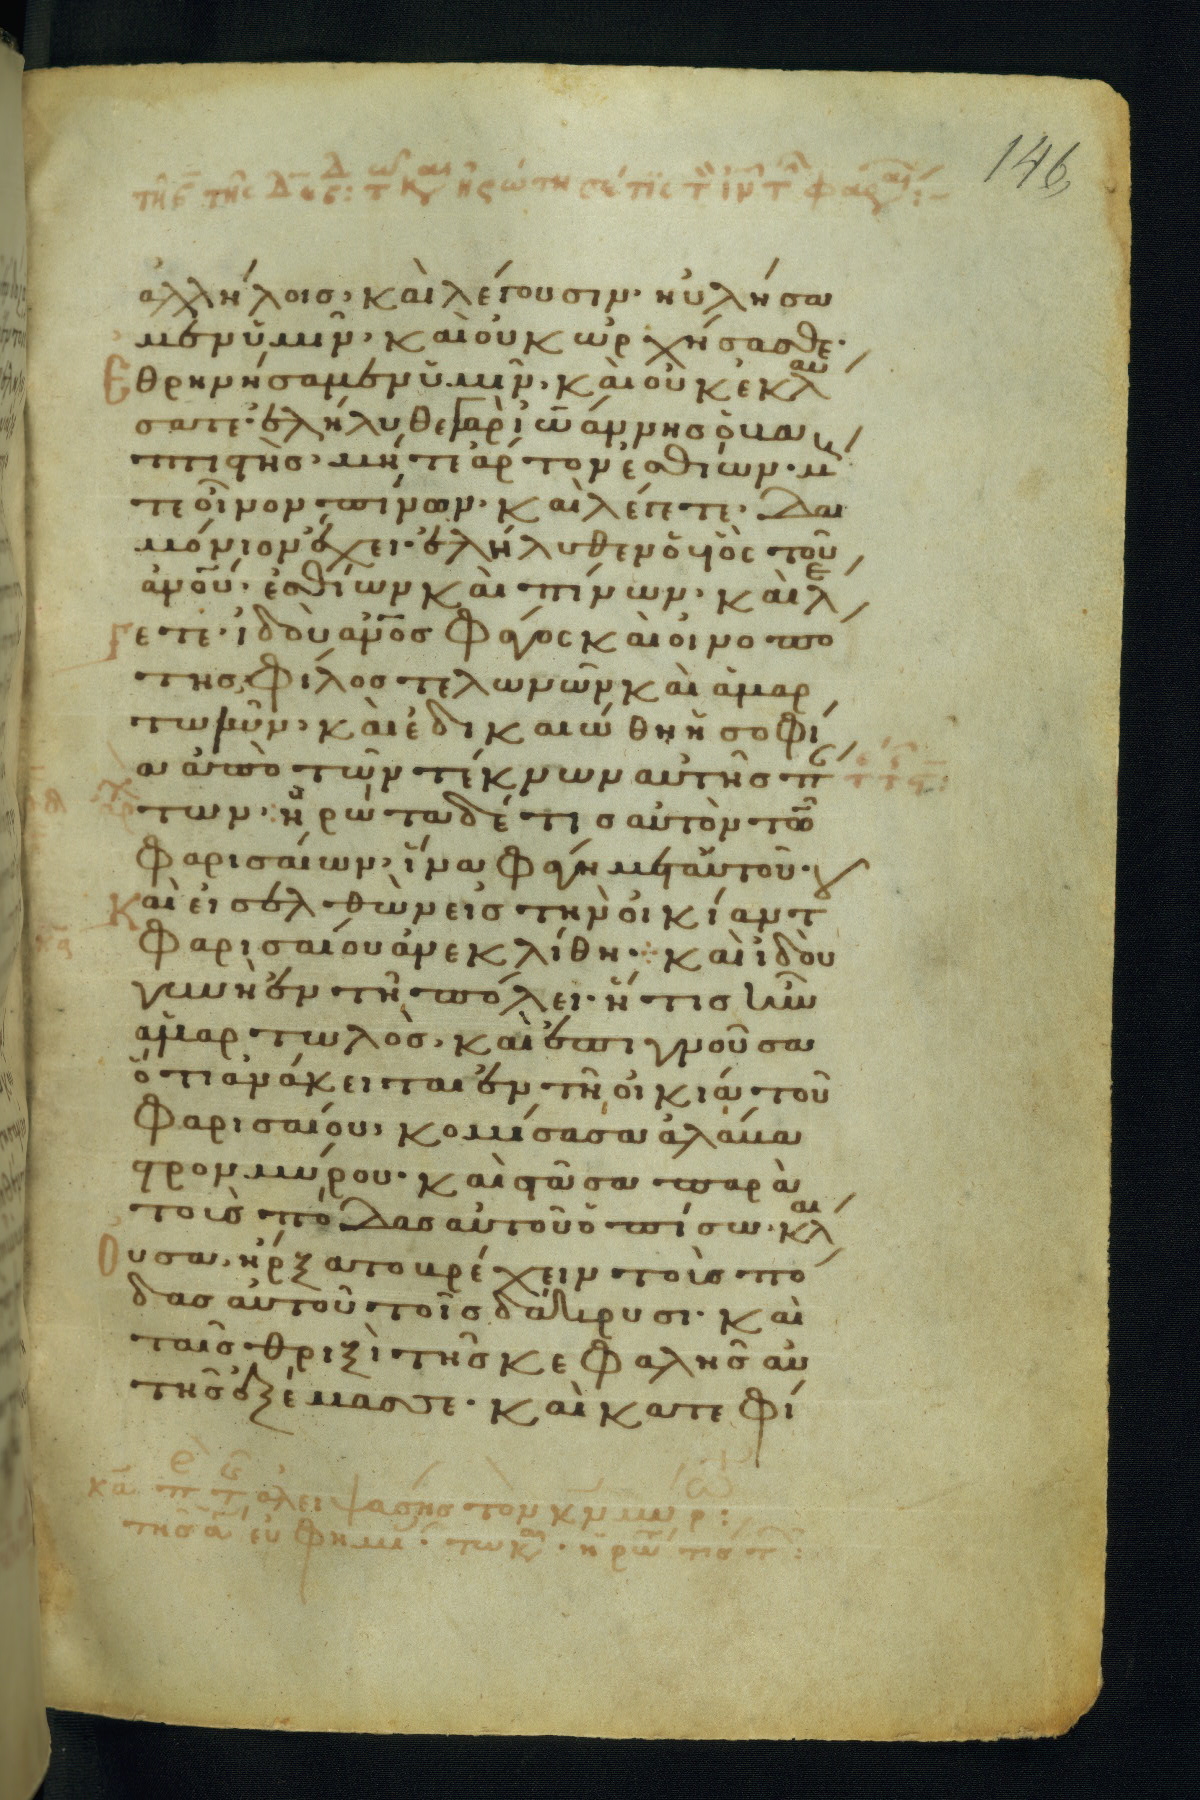 146
ἀλλήλοισ, καὶ λέγουσιν· ηὐλήσα
μεν ὑμῖν, καὶ οὐκ ὠρχήσασθε·
Ἐθρηνήσαμεν ὑμῖν, καὶ οὐκ ἐκλαύ
σατε· ἐλήλυθε γὰρ ἰωάννησ ὁ βα
πτιστὴσ, μήτε ἄρτον ἐσθίων· μή
τε οἶνον πίνων· καὶ λέγετε· δαι
μόνιον ἔχει· ἐλήλυθεν ὁ υἱὸσ τοῦ
ἀνου· ἐσθίων καὶ πίνων· καὶ λέ
γετε· ἰδοὺ ἀνος φάγος καὶ οἰνοπό
της, φίλοσ τελωνῶν καὶ ἁμαρ
τωλῶν· καὶ ἐδικαιώθη ἡ σοφί
α ἀπὸ τῶν τέκνων αὐτῆσ πάν
των· ἠρώτα δέ τισ αὐτὸν τῶν
φαρισαίων, ἵνα φάγη μετ᾽ αὐτοῦ·
Καὶ εἰσελθὼν εἰσ τὴν οἰκίαν τοῦ
φαρισαίου ἀνεκλίθη· καὶ ἰδοὺ
γυνὴ ἐν τῆ πόλει· ἥτισ ἦν
ἁμαρτωλὸσ, καὶ ἐπιγνοῦσα
ὅτι ἀνάκειται ἐν τῆ οἰκία τοῦ
φαρισαίου, κομίσασα ἀλάβα
στρον μύρου· καὶ στᾶσα παρὰ
τοὺσ πόδασ αὐτοῦ ὀπίσω· κλαί
Ουσα, ἤρξατο βρέχειν τοὺσ πό
δασ αὐτοῦ τοῖσ δάκρυσι· καὶ
ταῖσ θριξὶ τῆσ κεφαλῆσ αὐ
τῆσ ἐξέμασσε· καὶ κατεφί